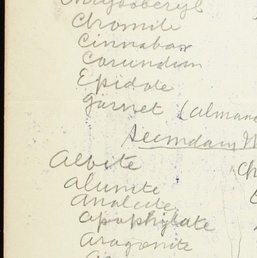 Chrysoberyl
Chromite
Cinnabar
Corundum
Epidote
Garnet (alman
Secondary M
Albite
Ch
Alunite
Analcite
Apophylate
Aragonite